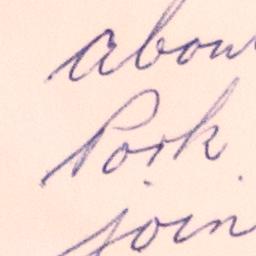 about
Pork.
join